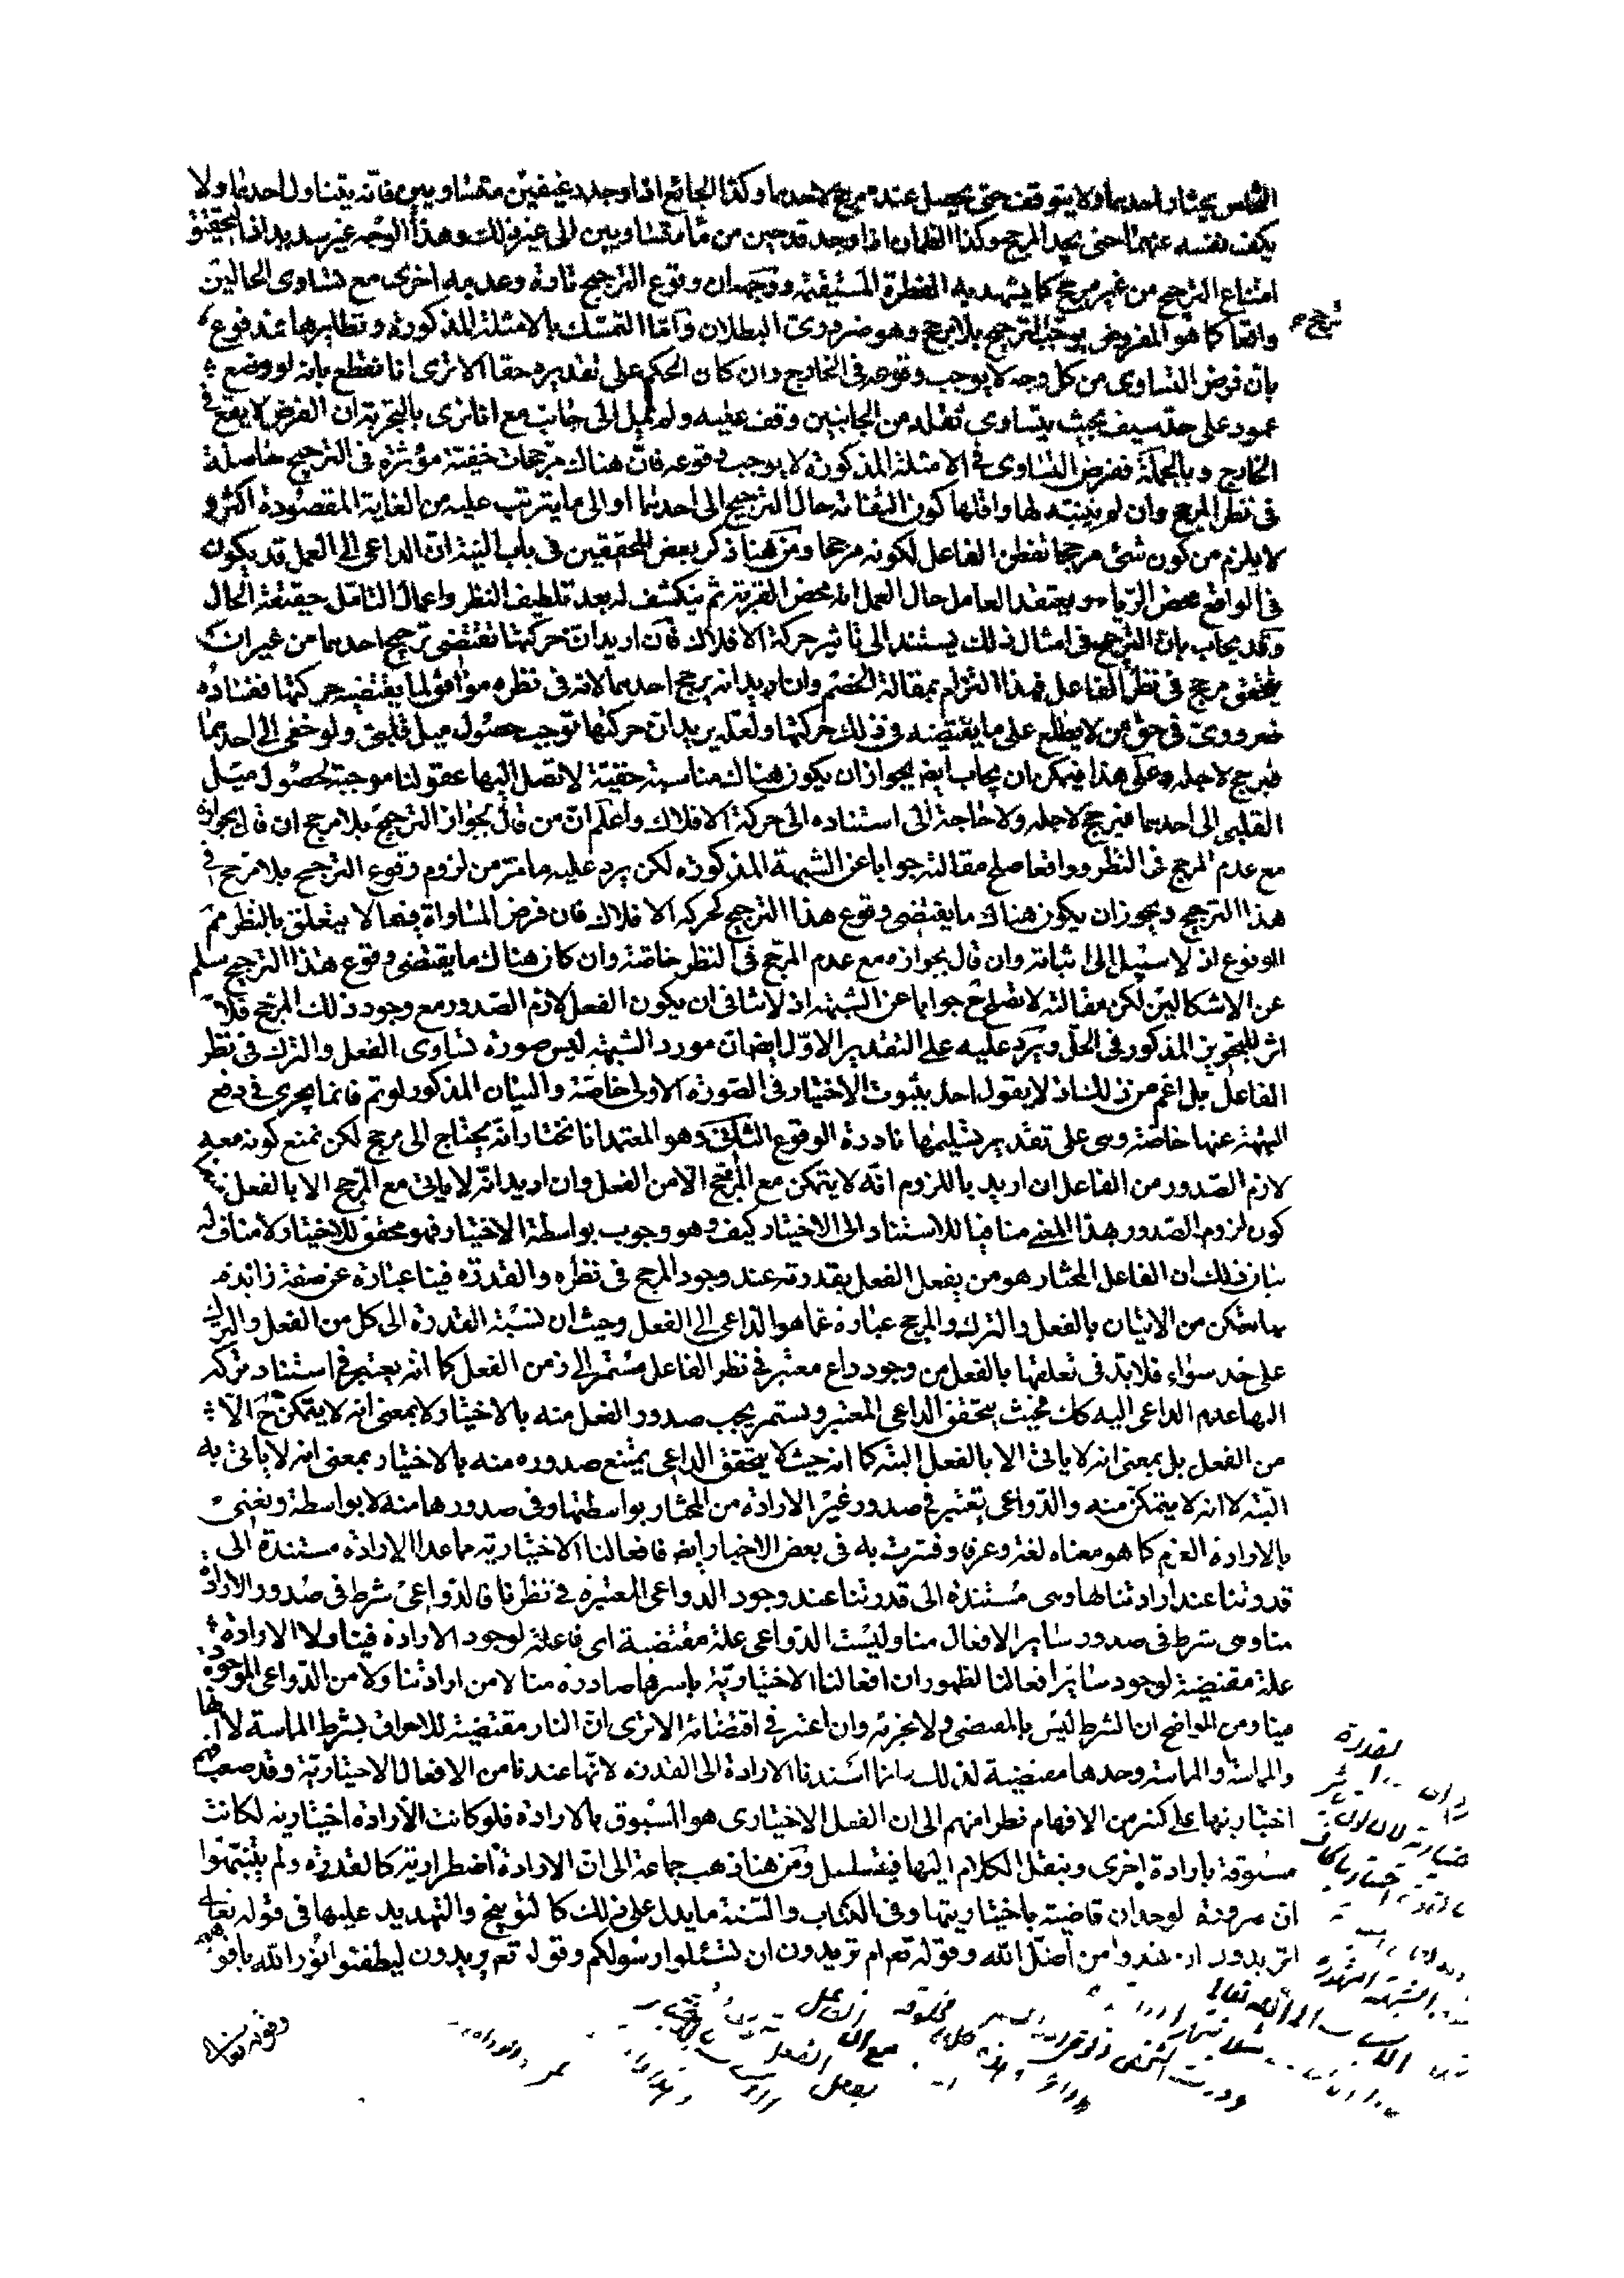 الشمس يختار احدهما ولا يتوقف حتى يحصل عنده مرجح لاحدهما وكذا الجائع اذا وجد رغيفين متساويين فانه يتناول احدهما ولا
يكف نفسه عنهما حتى يجد المرجح وكذا الظمان اذا وجد قدحين من ماء متساويين الى غير ذلك وهذا الوجه غير سديد اذا لتحقيق
امتناع الترجيح من غير مرجح كما يشهد به الفطرة المستقيمة ووجهه ان وقوع الترجيح تارة وعدمه اخرى مع تساوى الحالين
واقعا كما هو المفروض يوجب الترجيح بلا مرجح وهو ضرورى البطلان وامّا التمسّك بالامثلة المذكورة ونظايرها فمدفوع
ترجح
بان فرض التساوى من كل وجه لا يوجب وقوعه فى الخارج وان كان الحكم على تقديره حقا الا ترى انا نقطع بانه لو وضع
عمود على حد سيف بحيث يتساوى ثقله من الجانبين وقف عليه ولم يمل الى جانب مع انا نرى بالتجربة ان الفرض لا يقع فى
الخارج وبالجملة ففرض التساوى فى الامثلة المذكورة لا يوجب وقوعه فان هناك مرجحات خفيّة مؤثرة فى الترجيح حاصلة
فى نظر المرجح وان لم يتنبه لها واقلها كون التفاته حال الترجيح الى احدهما او الى ما يترتب عليه من الغاية المقصودة اكثر و
لا يلزم من كون شئ مرجحا تفطن الفاعل لكونه مرجحا ومن هنا ذكر بعض المحققين فى باب النية ان الداعى الى العمل قد يكون
فى الواقع محض الريا ويعتقد العامل حال العمل انه محض القربة ثم ينكشف له بعد تلطيف النظر واعمال التامّل حقيقة الحال
وقد يجاب بان الترجيح فى امثال ذلك يستند الى تاثير حركة الافلاك فان اريد ان حركتها تقتضى ترجيح احدهما من غير ان
يتحقق مرجح فى نظر الفاعل فهذا التزام بمقالة الخصم وان اريد انه يرجح احدهما لانه فى نظره موافق لما يقتضيه حركتها ففساده
ضرورى فى حق من لا يطلع على ما يقتضيه فى ذلك حركتها ولعله يريد ان حركتها توجب حصول ميل قلبى ولو خفى الى احدهما
فيرجح لاجله وعلى هذا فيمكن ان يجاب ايضا بجواز ان يكون هناك مناسبة خفيّة لا تصل اليها عقولنا موجبة لحصول ميل
القلبى الى احدهما فيرجح لاجله ولا حاجة الى استناده الى حركة الافلاك واعلم ان من قال بجواز الترجيح بلا مرجح ان قال بجوازه
مع عدم المرجح فى النظر وواقعا صلح مقالته جوابا عن الشبهة المذكورة لكن يرد عليه ما مر من لزوم وقوع الترجيح بلا مرجح فى
هذا الترجيح ويجوز ان يكون هناك ما يقتضى وقوع هذا الترجيح كحركة الافلاك فان فرض المساواة فيما لا يتعلق بالنظر مم
الوقوع اذ لا سبيل الى اثباته وان قال بجوازه مع عدم المرجح فى النظر خاصّة وان كان هناك ما يقتضى وقوع هذا الترجيح سلم
عن الاشكالين لكن مقالته لا تصلح ح جوابا عن الشبهة اذ لا ينافى ان يكون الفعل لازم الصدور مع وجود ذلك المرجح فلا
اثر للتجويز المذكور فى الحلّ ويرد عليه على التقدير الاوّل ايضا ان مورد الشبهة ليس صورة تساوى الفعل والترك فى نظر
الفاعل بل اعم من ذلك اذ لا يقول احد بثبوت الاختيار فى الصّورة الاولى خاصّة والبيان المذكور لو تم فانما يجرى فى دفع
الشبهة عنها خاصّة وهى على تقدير تسليمها نادرة الوقوع الثانى وهو المعتمد انا نختار انه يحتاج الى مرجح لكن نمنع كونه معه
لازم الصّدور من الفاعل ان اريد باللزوم انّه لا يتمكن مع المرجّح الّا من الفعل وان اريد انّه لا ياتى مع المرجح الا بالفعل فنمنع
كون لزوم الصّدور بهذا المعنى منافيا للاستناد الى الاختيار كيف وهو وجوب بواسطة الاختيار فهو محقق للاختيار لا مناف له
بيان ذلك ان الفاعل المختار هو من يفعل الفعل بقدرته عند وجود المرجح فى نظره والقدرة فينا عبارة عن صفة زايدة
بها نتمكن من الاتيان بالفعل والترك والمرجح عبارة عما هو الداعى الى الفعل وحيث ان نسبة القدرة الى كل من الفعل والترك
على حد سواء فلا بدّ فى تعلقها بالفعل من وجود داع معتبر فى نظر الفاعل مستمر الى زمن الفعل كما انه يعتبر فى استناد تركه
اليها عدم الداعى اليه كك فحيث يتحقق الداعى المعتبر ويستمر يجب صدور الفعل منه بالاختيار لا بمعنى انه لا يتمكن ح الّا
من الفعل بل بمعنى انه لا ياتى الا بالفعل البتّه كما انه حيث لا يتحقق الداعى يمتنع صدوره منه بالاختيار بمعنى انه لا ياتى به
البتّه لا انه لا يتمكن منه والدّواعى تعتبر فى صدور غير الارادة من المختار بواسطتها وفى صدورها منه لا بواسطة ونعنى
بالارادة العزم كما هو معناه لغة وعرفا وفسرت به فى بعض الاخبار ايضا فافعالنا الاختيارية ما عدا الارادة مستندة الى
قدرتنا عند ارادتنا لها وهى مستندة الى قدرتنا عند وجود الدواعى المعتبرة فى نظرنا فالدّواعى شرط فى صدور الارادة
منا وهى شرط فى صدور ساير الافعال منا وليست الدّواعى علة مقتضية اى فاعلة لوجود الارادة فينا ولا الارادة
علة مقتضية لوجود ساير افعالنا لظهور ان افعالنا الاختياريّة باسرها صادرة منا لا من ارادتنا ولا من الدّواعى الموجودة
فينا ومن الواضح ان الشرط ليس بالمقتضى ولا بجزئه وان اعتبر فى اقتضائه الا ترى ان النار مقتضية للاحراق بشرط المماسة لا انها
والمماسة او المماسة وحدها مقتضية لذلك وانما اسندنا الارادة الى القدرة لانّها عندنا من الافعال الاختياريّة وقد صعب فهم
اختياريتها على كثير من الافهام نظرا منهم الى ان الفعل الاختيارى هو المسبوق بالارادة فلو كانت الارادة اختيارية لكانت
مسبوقة بارادة اخرى وينقل الكلام اليها فيتسلسل ومن هنا ذهب جماعة الى ان الارادة اضطرارية كالقدرة ولم يتنبّهوا
ان ضرورة الوجدان قاضية باختياريتها وفى الكتاب والسّنة ما يدل على ذلك كالتوبيخ والتهديد عليها فى قوله تعالى
اتريدون ان تهدوا من اضلّ الله وقوله تعم ام تريدون ان تسئلوا رسولكم وقوله تعم يريدون ليطفئوا نور الله بافواههم
وقوله تعالى